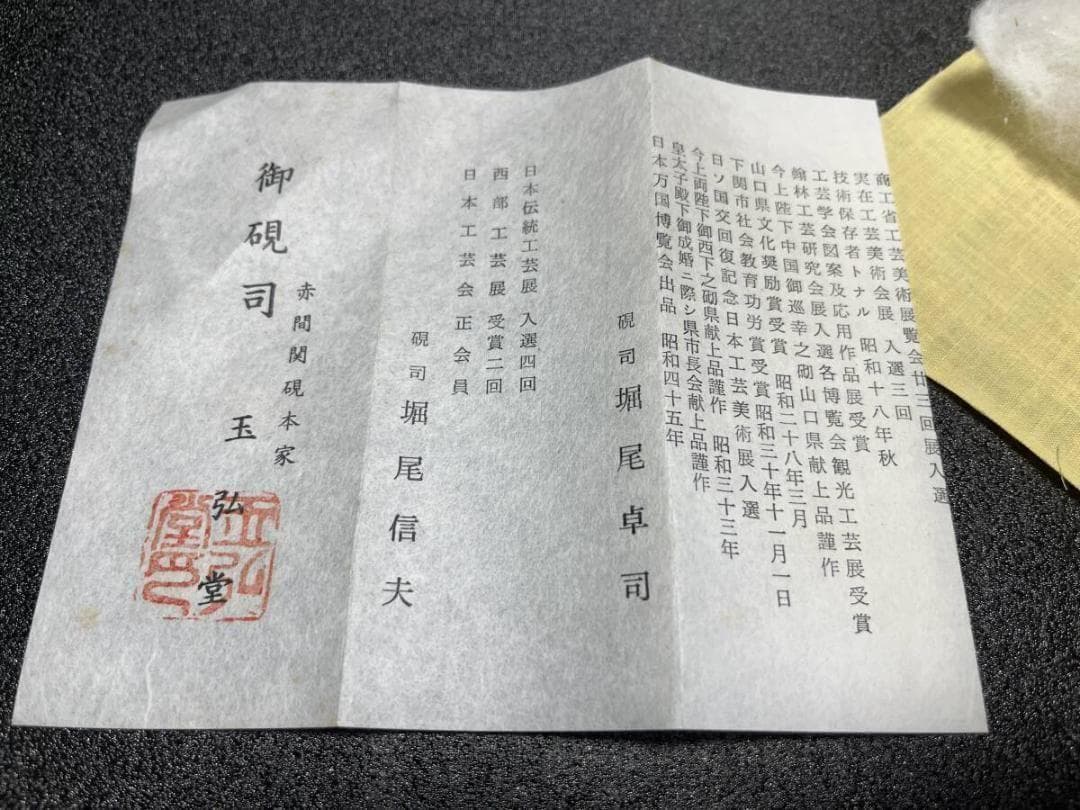 商工省工芸美術展覧会廿三回展入選
実在工芸美術会展 入選三回
技術保存者トナル 昭和十八年秋
工芸学会図案及応用作品展受賞
翰林工芸研究会展入選各博覧会観光工芸展受賞
今上陛下中国御巡幸之砌山口県献上品謹作
山口県文化奨励賞受賞 昭和二十八年三月
下関市社会教育功労賞受賞昭和三十年十一月一日
日ソ国交回復記念日本工芸美術展入選
今上両陛下御西下之砌県献上品謹作 昭和三十三年
皇太子殿下御成婚ニ際シ県市長会献上品謹作
日本万国博覧会出品 昭和四十五年
硯司 堀尾卓司
日本伝統工芸展 入選四回
西部工芸展 受賞二回
日本工芸会正会員
硯司 堀尾信夫
赤間関硯本家
御硯司 玉弘堂